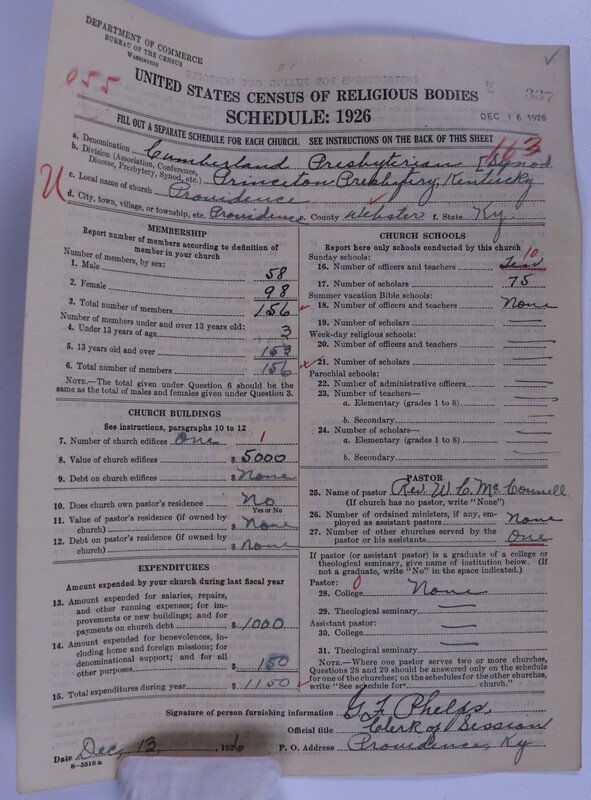 DEPARTMENT OF COMMERCE
BUREAU OF THE CENSUS
WASHINGTON
055
337
UNITED STATES CENSUS OF RELIGIOUS BODIES
SCHEDULE: 1926
DEC 16 1926
FILL OUT A SEPARATE SCHEDULE FOR EACH CHURCH. SEE INSTRUCTIONS ON THE BACK OF THIS SHEET
113
a. Denomination Cumberland Presbyterian Synod
b. Division (Association, Conference, Diocese, Presbytery, Synod, etc.) Princeton Presbytery, Kentucky
c. Local name of church Providence
d. City, town, village, or township, etc. Providence e. County Webster f. State Ky.
MEMBERSHIP
Report number of members according to definition of
member in your church
Number of members, by sex:
1. Male 58
2. Female 98
3. Total number of members 156
Number of members under and over 13 years old:
4. Under 13 years of age 3
5. 13 years old and over 153
6. Total number of members 156
NOTE.—The total given under Question 6 should be
same as the total of males and females given under Question 3.
CHURCH BUILDINGS
See instructions, paragraphs 10 to 12
7. Number of church edifices One 1
8. Value of church edifices $ 5000
9. Debt on church edifices $ None
10. Does church own pastor's residence? No
Yes or No
11. Value of pastor's residence (if owned by
church) $ None
12. Debt on pastor's residence (if owned by
church) $ None
EXPENDITURES
Amount expended by your church during last fiscal year
13. Amount expended for salaries, repairs,
and other running expenses; for im-
provements or new buildings; and for
payments on church debt $ 1000
14. Amount expended for benevolences, in-
cluding home and foreign missions; for
denominational support; and for all
other purposes $ 150
15. Total expenditures during year $ 1150
CHURCH SCHOOLS
Report here only schools conducted by this church
Sunday schools: 10
16. Number of officers and teachers Ten
17. Number of scholars 75
Summer vacation Bible schools:
18. Number of officers and teachers None
19. Number of scholars
Week-day religious schools:
20. Number of officers and teachers
21. Number of scholars
Parochial schools:
22. Number of administrative officers
23. Number of teachers—
a. Elementary (grades 1 to 8)
b. Secondary
24. Number of scholars—
a. Elementary (grades 1 to 8)
b. Secondary
PASTOR
25. Name of pastor Rev. W. C. McConnell
(If church has no pastor, write "None")
26. Number of ordained ministers, if any, em-
ployed as assistant pastors None
27. Number of other churches served by the
pastor or his assistants One
If pastor (or assistant pastor) is a graduate of a college or
theological seminary, give name of institution below. (If
not a graduate, write "No" in the space indicated.)
Pastor: 0
28. College None
29. Theological seminary
Assistant pastor:
30. College
31. Theological seminary
NOTE.—Where one pastor serves two or more churches,
Questions 28 and 29 should be answered only on the schedule
for one of the churches; on the schedules for the other churches,
write "See schedule for church."
Signature of person furnishing information G. F. Phelps
Official title Clerk of Session
Date Dec, 13, 1926 P. O. Address Providence, Ky
8—5519 a